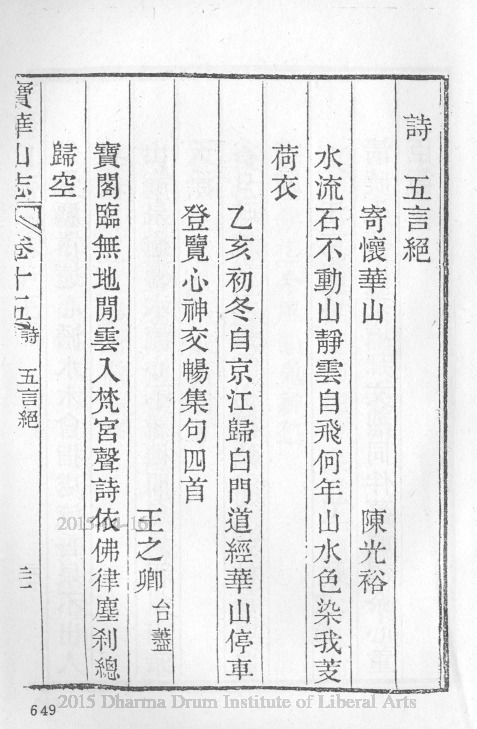 詩　五言絕
寄懷華山　陳光裕
水流石不動山靜雲自飛何年山水色染我芰
荷衣
乙亥初冬自京江歸白門道經華山停車
登覽心神交暢集句四首
王之卿 台藎
寶閣臨無地閒雲入梵宮聲詩依佛律塵刹總
歸空
寶華山志 卷十五 詩 五言絕 二
2015-04-15
649
2015 Dharma Drum Institute of Liberal Arts